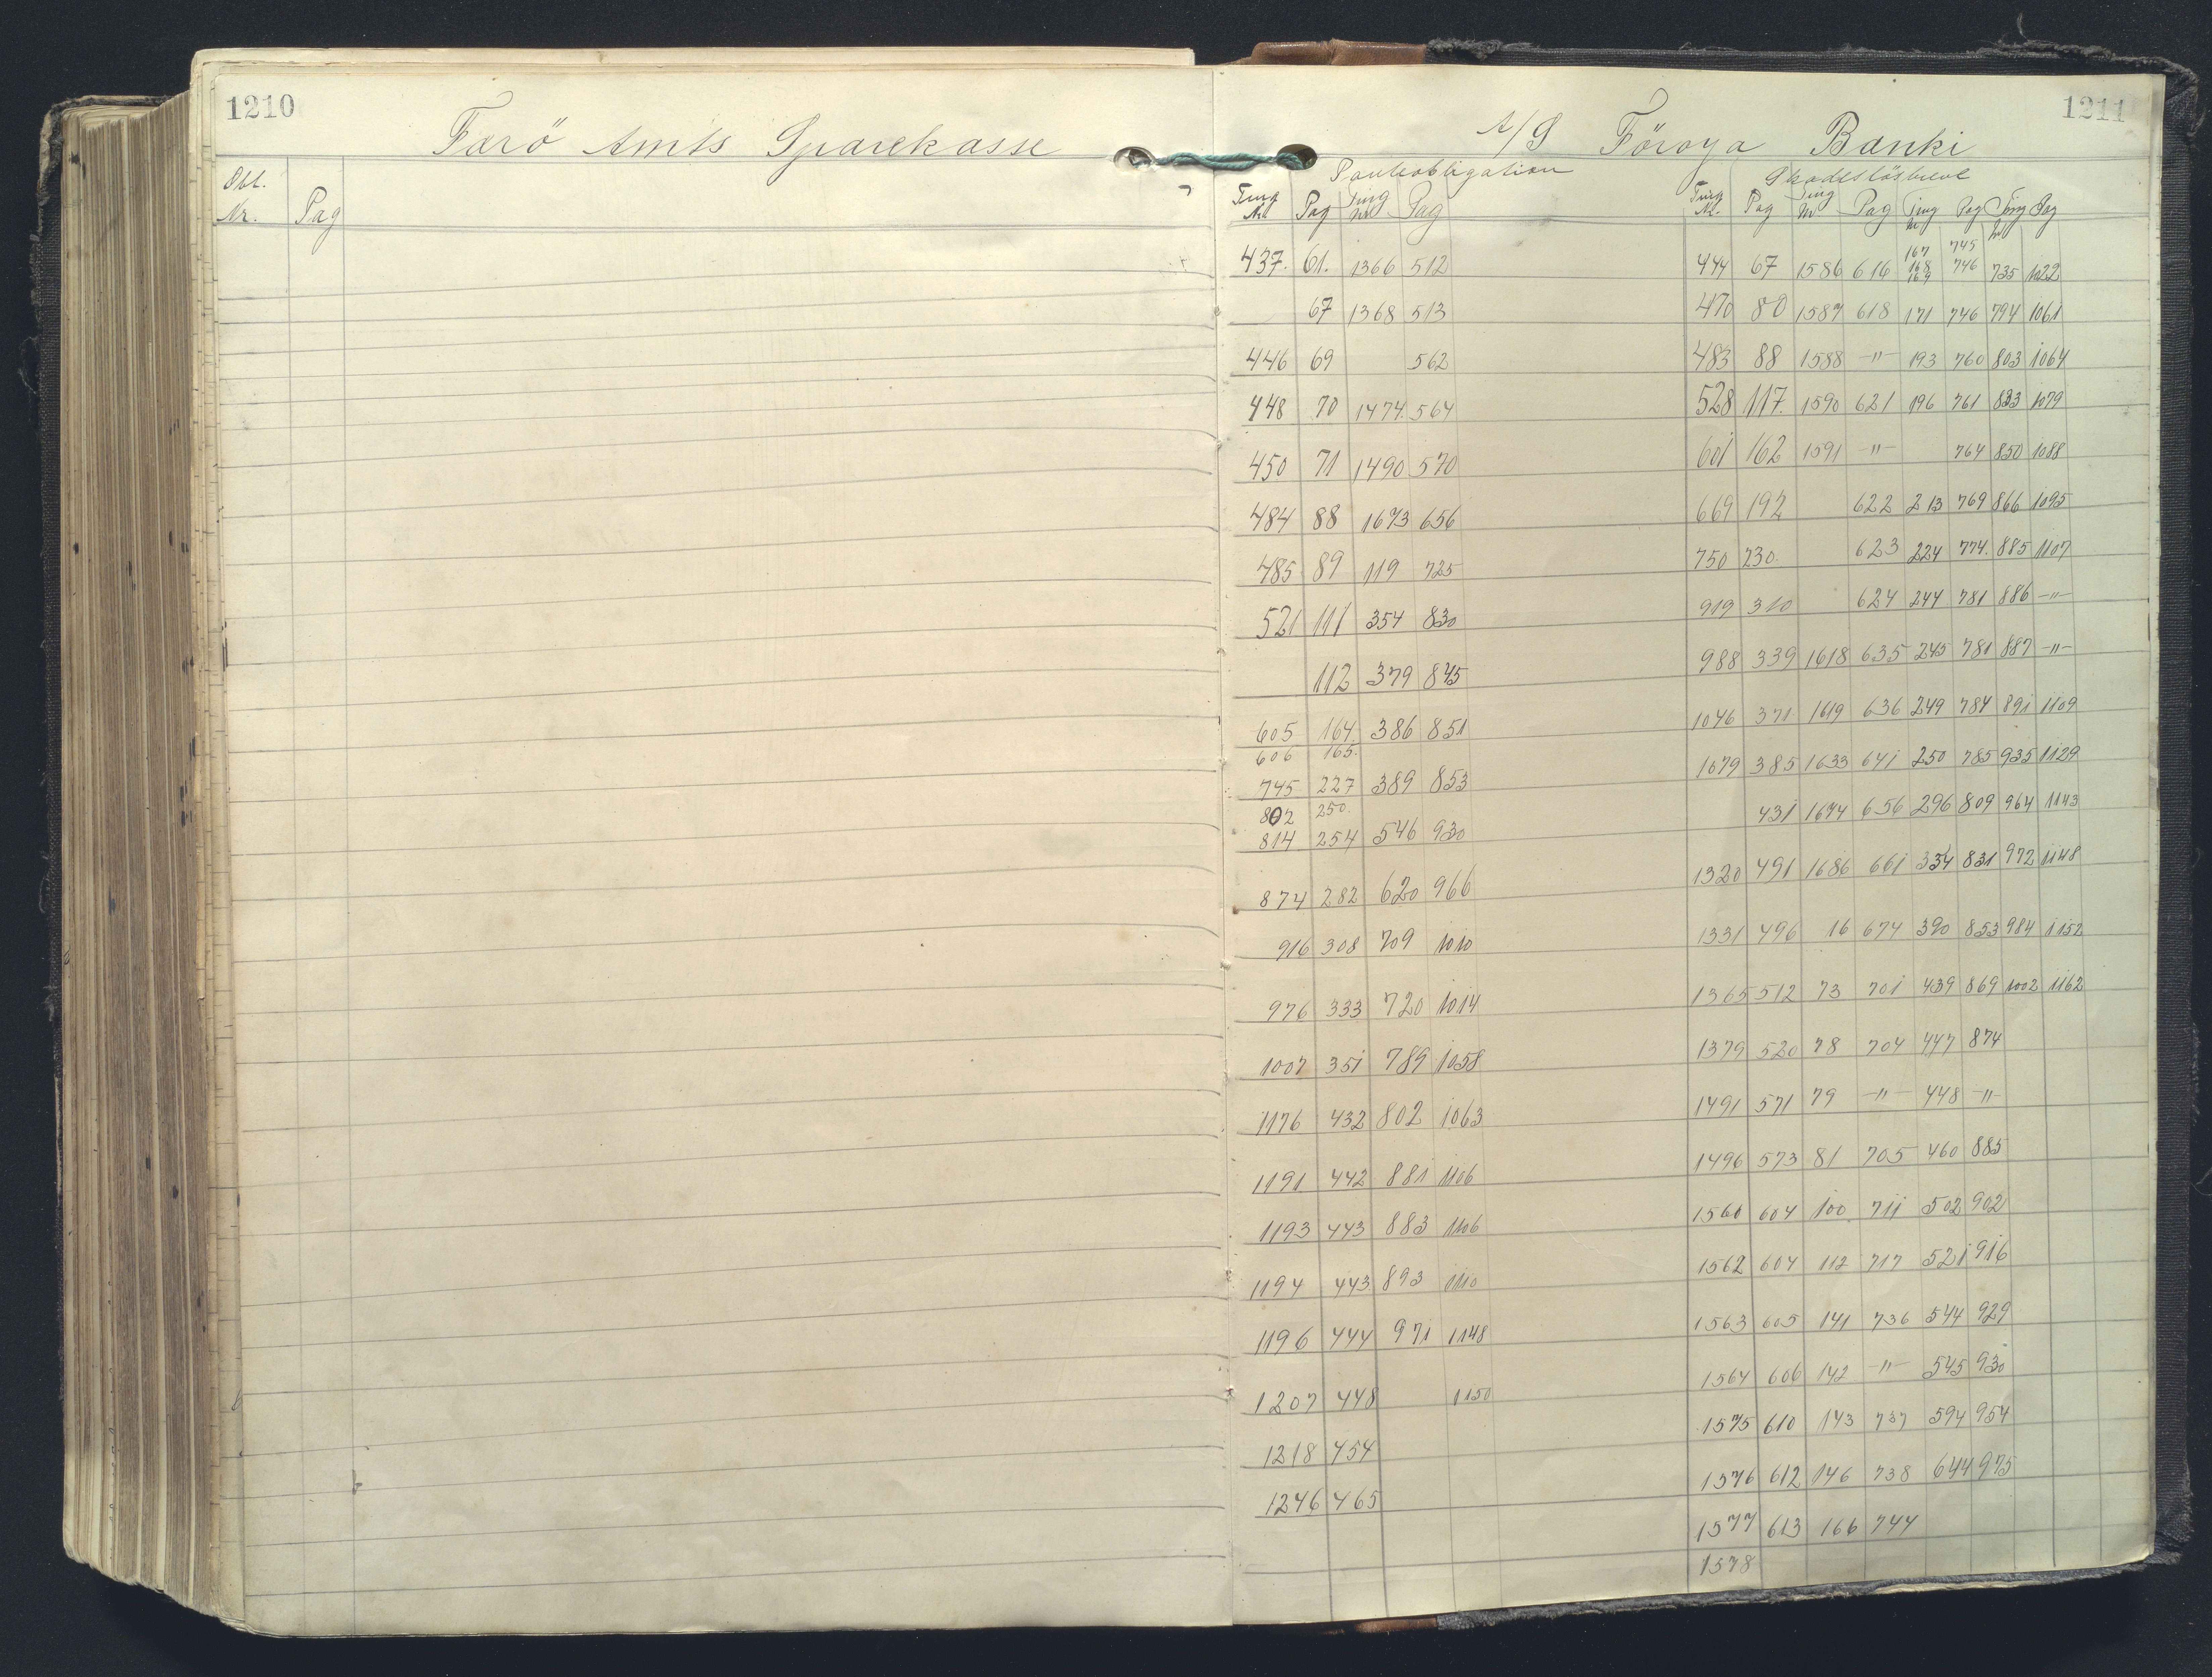 1210
Færö Amts Sparekasse
Obl. Nr. Pag
1211
A/S Föroya Banki
Panteobligation Skadeslösbreve
Ting Nr. Pag Ting Nr Pag Ting Nr. Pag Ting Nr Pag Ting Nr Pag Ting Nr Pag
437. 61. 1366 512 444 67 1586 616 167 168 169 745 746 735 1022
67 1368 513 470 80 1587 618 171 746 794 1061
446 69 562 483 88 1588 -"- 193 760 803 1064
448 70 1474. 564 528 117. 1590 621 196 761 833 1079
450 71 1490 570 601 162 1591 -"- 764 850 1088
484 88 1673 656 669 192 622 213 769 866 1095
485 89 119 725 750 230. 623 224 774. 885 1107
521 111 354 830 919 310 624 244 781 886 -"-
112 379 845 988 339 1618 635 245 781 887 -"-
605 164. 386 851 1046 371 1619 636 249 784 891 1109
606 165.
745 227 389 853 1079 385 1633 641 250 785 935 1129
802 250.
814 254 546 930 431 1674 656 296 809 964 1143
874 282 620 966 1320 491 1686 661 334 831 972 1148
916 308 709 1010 1331 496 16 674 390 853 984 1152
976 333 720 1014 1365 512 73 701 439 869 1002 1162
1007 351 789 1058 1379 520 78 704 447 874
1176 432 802 1063 1491 571 79 -"- 448 -"-
1191 442 881 1106 1496 573 81 705 460 885
1193 443 883 1106 1560 604 100 711 502 902
1194 443 893 1110 1562 604 112 717 521 916
1196 444 971 1148 1563 605 141 736 544 929
1207 448 1150 1564 606 142 -"- 545 930
1218 454 1575 610 143 737 594 954
1246 465 1576 612 146 738 644 975
1577 613 166 744
1578